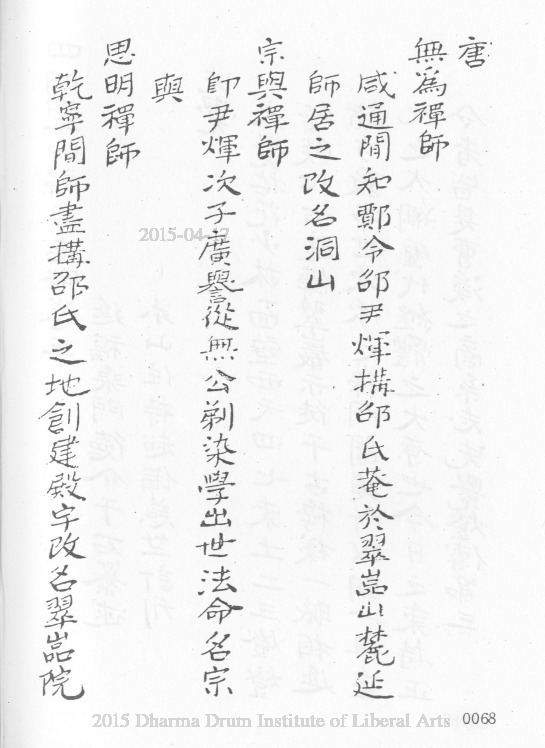 唐
無為禪師
咸通間知鄞令邵尹煇搆邵氏菴於翠嵓山麓延
師居之改名洞山
宗興禪師
即尹煇次子廣譽從無公剃染學出世法命名宗
興
思明禪師
乾寧間師盡搆邵氏之地創建殿宇改名翠嵓院
2015-04-17
2015 Dharma Drum Institute of Liberal Arts
0068